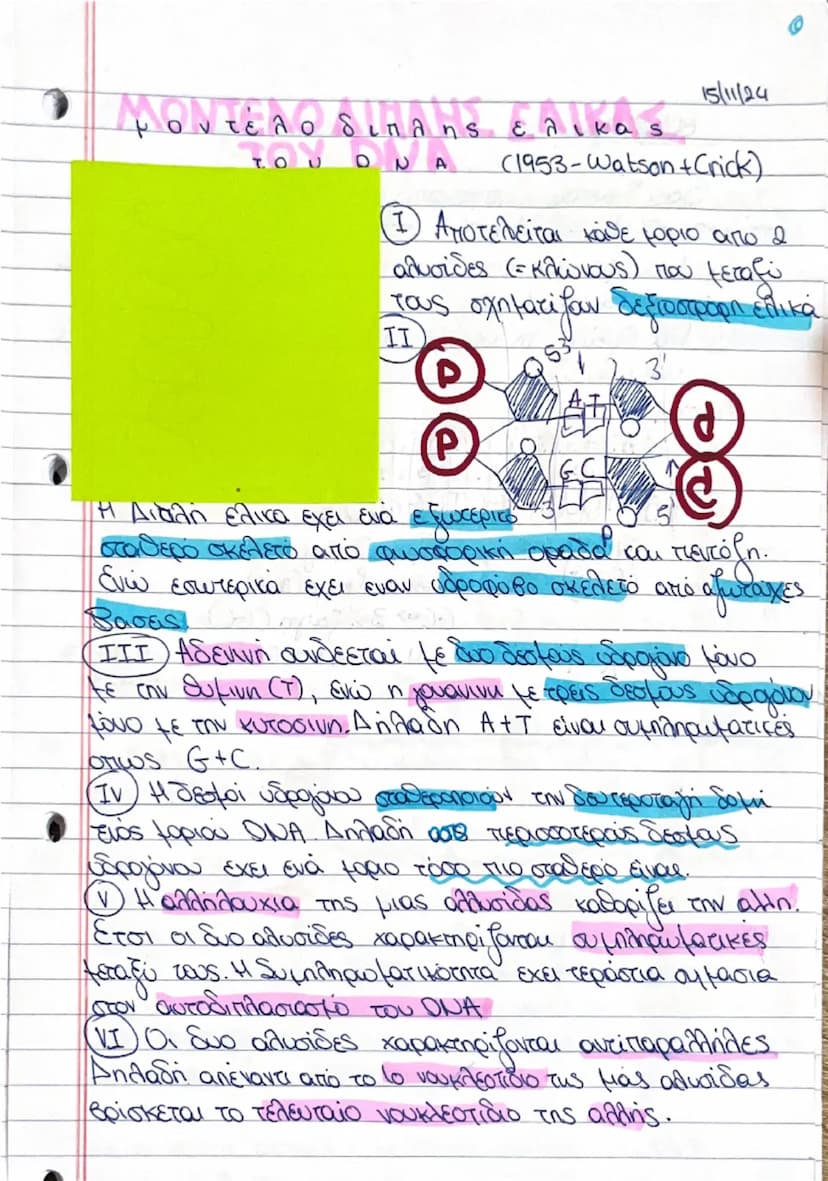 15/11/24
ΜΟΝΤΕΛΟ ΔΙΠΛΗΣ ΕΛΙΚΑΣ
μοντέλο διπλης ελικας
ΤΟΥ DNA
του DNA (1953-Watson+Crick)
I Αποτελείται κάθε μοριο από 2
αλυσίδες (=κλώνους) που μεταξύ
τους σχηματίζουν δεξιοστροφη ελικά
II
P 5' 3'
A T d
P G C P
3' P 5'
Η Διπλή ελικα εχει ενά εξωτερικό
σταθερό σκελετό από φωσφορική ομαδα και πεντόζη.
Ενώ εσωτερικά έχει εναν υδροφόβο σκελετό από αζωτούχες
βασεις
III Αδενινή συνδεεται με δυο δεσμούς υδρογόνο μόνο
με την θυμινη (Τ), ενώ η γουανινη με τρεις δεσμους υδρογόνου
μόνο με την κυτοσινη. Δήλαδη A+T είναι συμπληρωματικές
οπως G+C.
IV Η δεσμοί υδρογόνου σταθεροποιουν την δευτεροταγή δομή
τους μοριού DNA. Δηλαδή οσο περισσοτερους δεσμους
υδρογόνου εχει ενά μοριο τόσο πιο σταθερό είναι.
V Η αλληλουχια της μιας αλλυσίδας καθορίζει την αλλη.
Ετσι οι δυο αλυσίδες χαρακτηρίζονται συμπληρωματικές
μεταξύ τους. Η Συμπληρωματικότητα έχει τεράστια σημασια
στον αυτοδιπλασιασμό του DNA
VI Οι δυο αλυσίδες χαρακτηρίζονται αντιπαραλλήλες
Δηλαδή απέναντι από το 1ο νουκλεοτίδιο της μιάς αλυσίδας
βρίσκεται το τελευταίο νουκλεοτίδιο της αλλής.